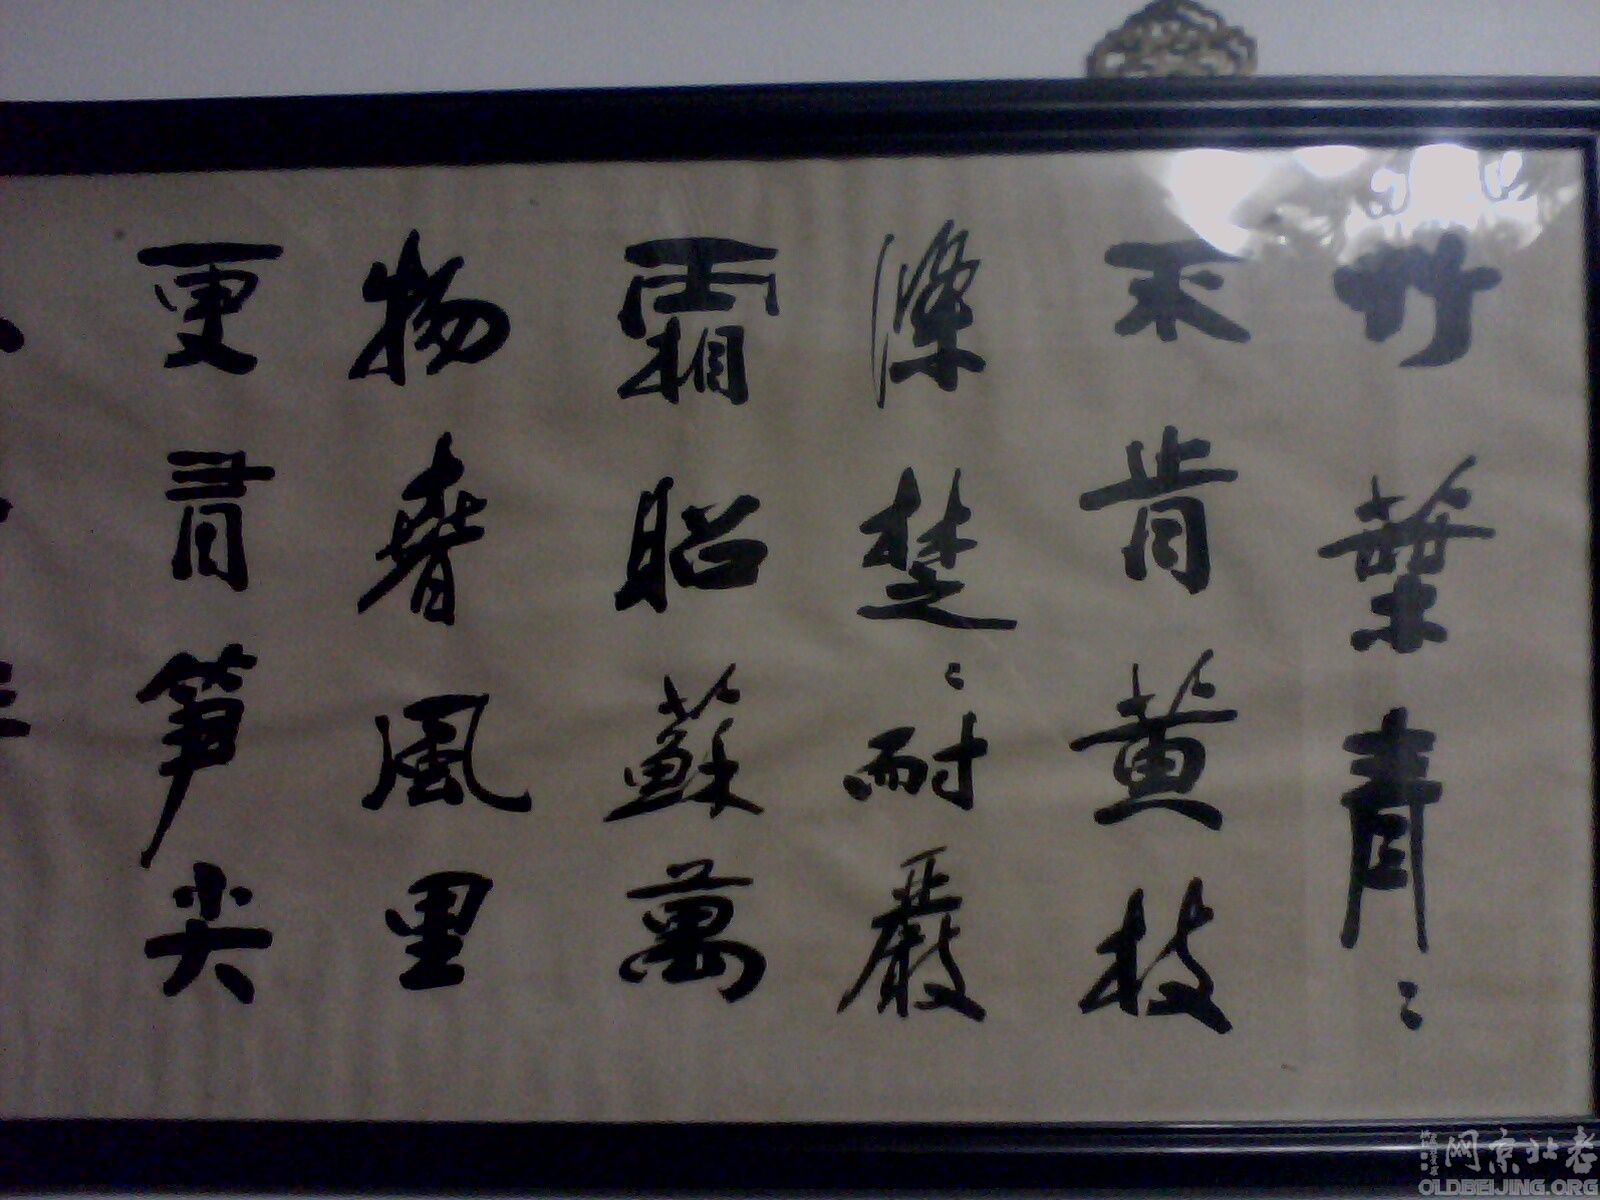 竹葉青〻
不肯黄枝
條楚〻耐嚴
霜昭蘇萬
物春風里
更有笋尖
老北京网
OLDBEIJING.ORG